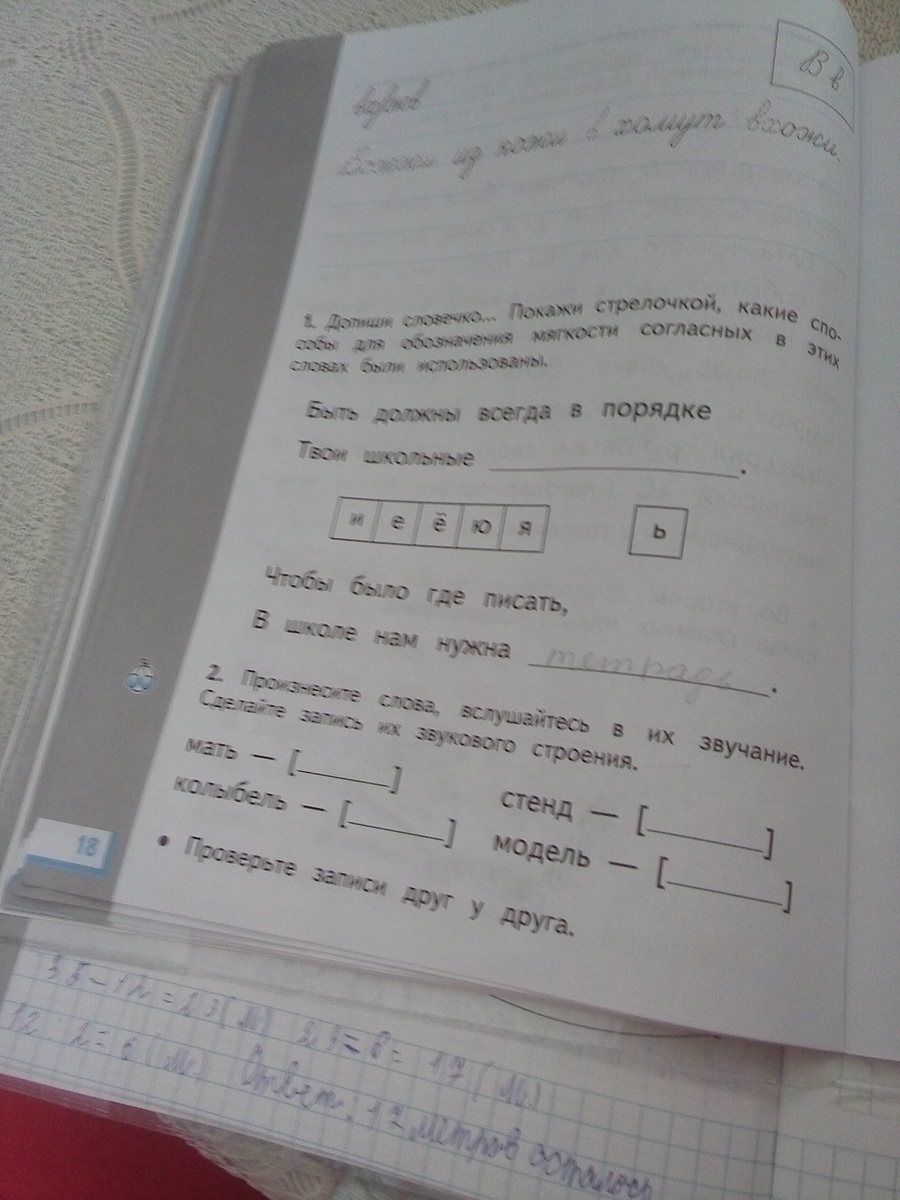 В в
Вожжи из кожи в хомут вхожи.
1. Допиши словечко... Покажи стрелочкой, какие спо-
собы для обозначения мягкости согласных в этих
словах были использованы.
Быть должны всегда в порядке
Твои школьные ____________.
и е ё ю я ь
Чтобы было где писать,
В школе нам нужна тетрадь.
2. Произнесите слова, вслушайтесь в их звучание.
Сделайте запись их звукового строения.
мать — [______] стенд — [______]
колыбель — [______] модель — [______]
• Проверьте записи друг у друга.
18
35-12=23(м) 23-6=17(м)
12:2=6(м) Ответ: 17 метров осталось